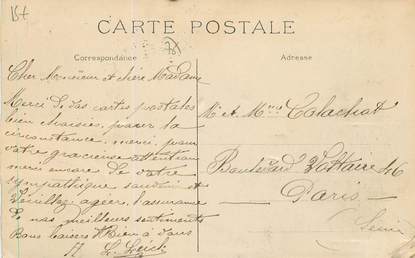 CARTE POSTALE
Correspondance
Adresse
Cher Monsieur et chère Madame
Merci de vos cartes postales
bien choisies, pour la
circonstance, merci, pour
votre gracieuse attention
merci encore de votre
sympathique soutien et
Veuillez agréer, l'assurance
de nos meilleurs sentiments
Bons baisers d'Bien à vous
M et Mme Calachat
Boulevard Voltaire 46
Paris
(Seine)